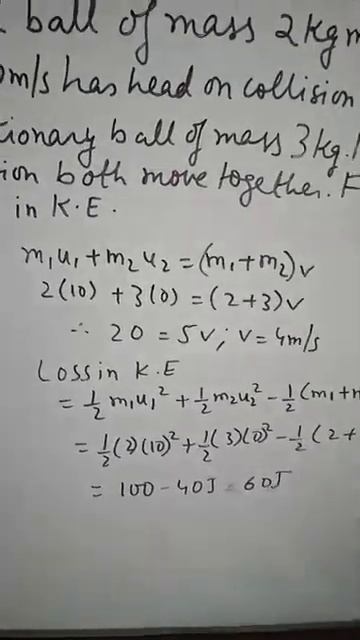 ball of mass 2kg m
0m/s has head on collision
tionary ball of mass 3kg.
ion both move together. F
in K.E.
m₁u₁+m₂u₂=(m₁+m₂)v
2(10)+3(0)=(2+3)v
∴ 20=5v; v=4m/s
Loss in K.E
=½m₁u₁²+½m₂u₂²-½(m₁+m
=½(2)(10)²+½(3)(0)²-½(2+
=100-40J=60J